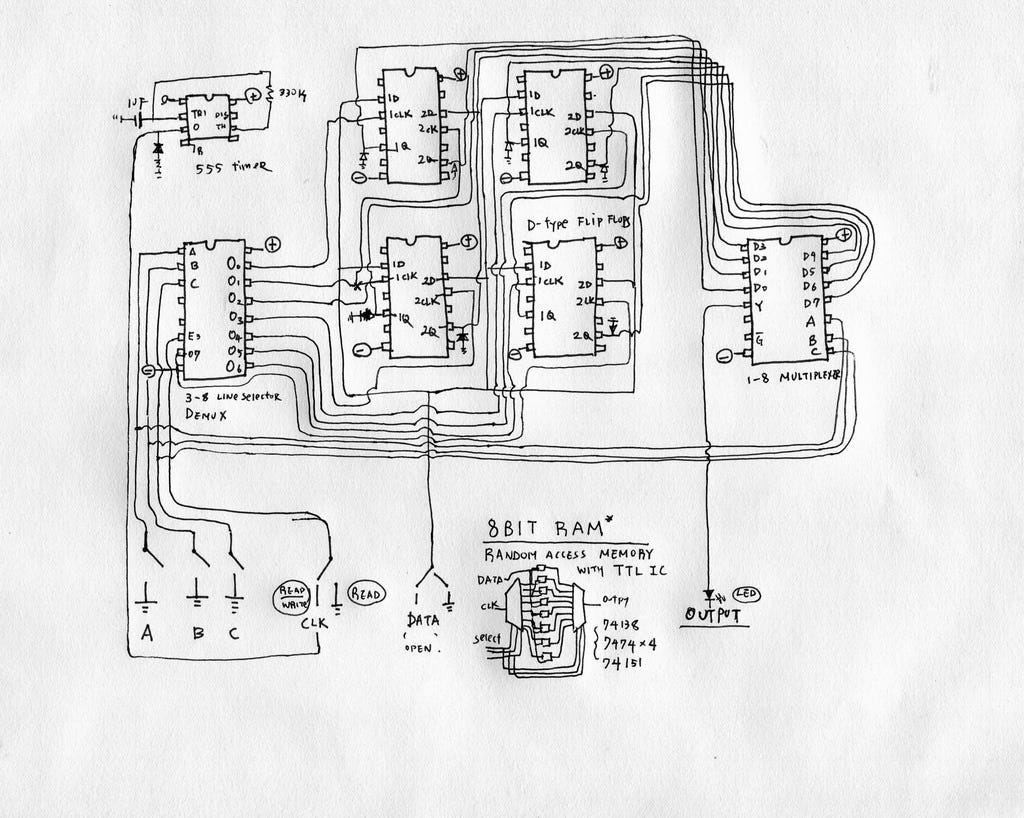 1UF
330K
TRI
DIS
O
TH
R
555 timer
1D
1CLK
2D
2CLK
1Q
2Q
1D
1CLK
2D
2CLK
1Q
2Q
D-type Flip Flops
A
B
C
E3
O7
O0
O1
O2
O3
O4
O5
O6
3-8 Line selector
DEMUX
1D
1CLK
2D
2CLK
1Q
2Q
1D
1CLK
2D
2CLK
1Q
2Q
D3
D2
D1
D0
Y
G
D4
D5
D6
D7
A
B
C
1-8 MULTIPLEXER
A
B
C
READ
WRITE
CLK
READ
DATA
OPEN.
8BIT RAM*
RANDOM ACCESS MEMORY
WITH TTL IC
DATA
CLK
select
74138
7474 x 4
74151
LED
OUTPUT